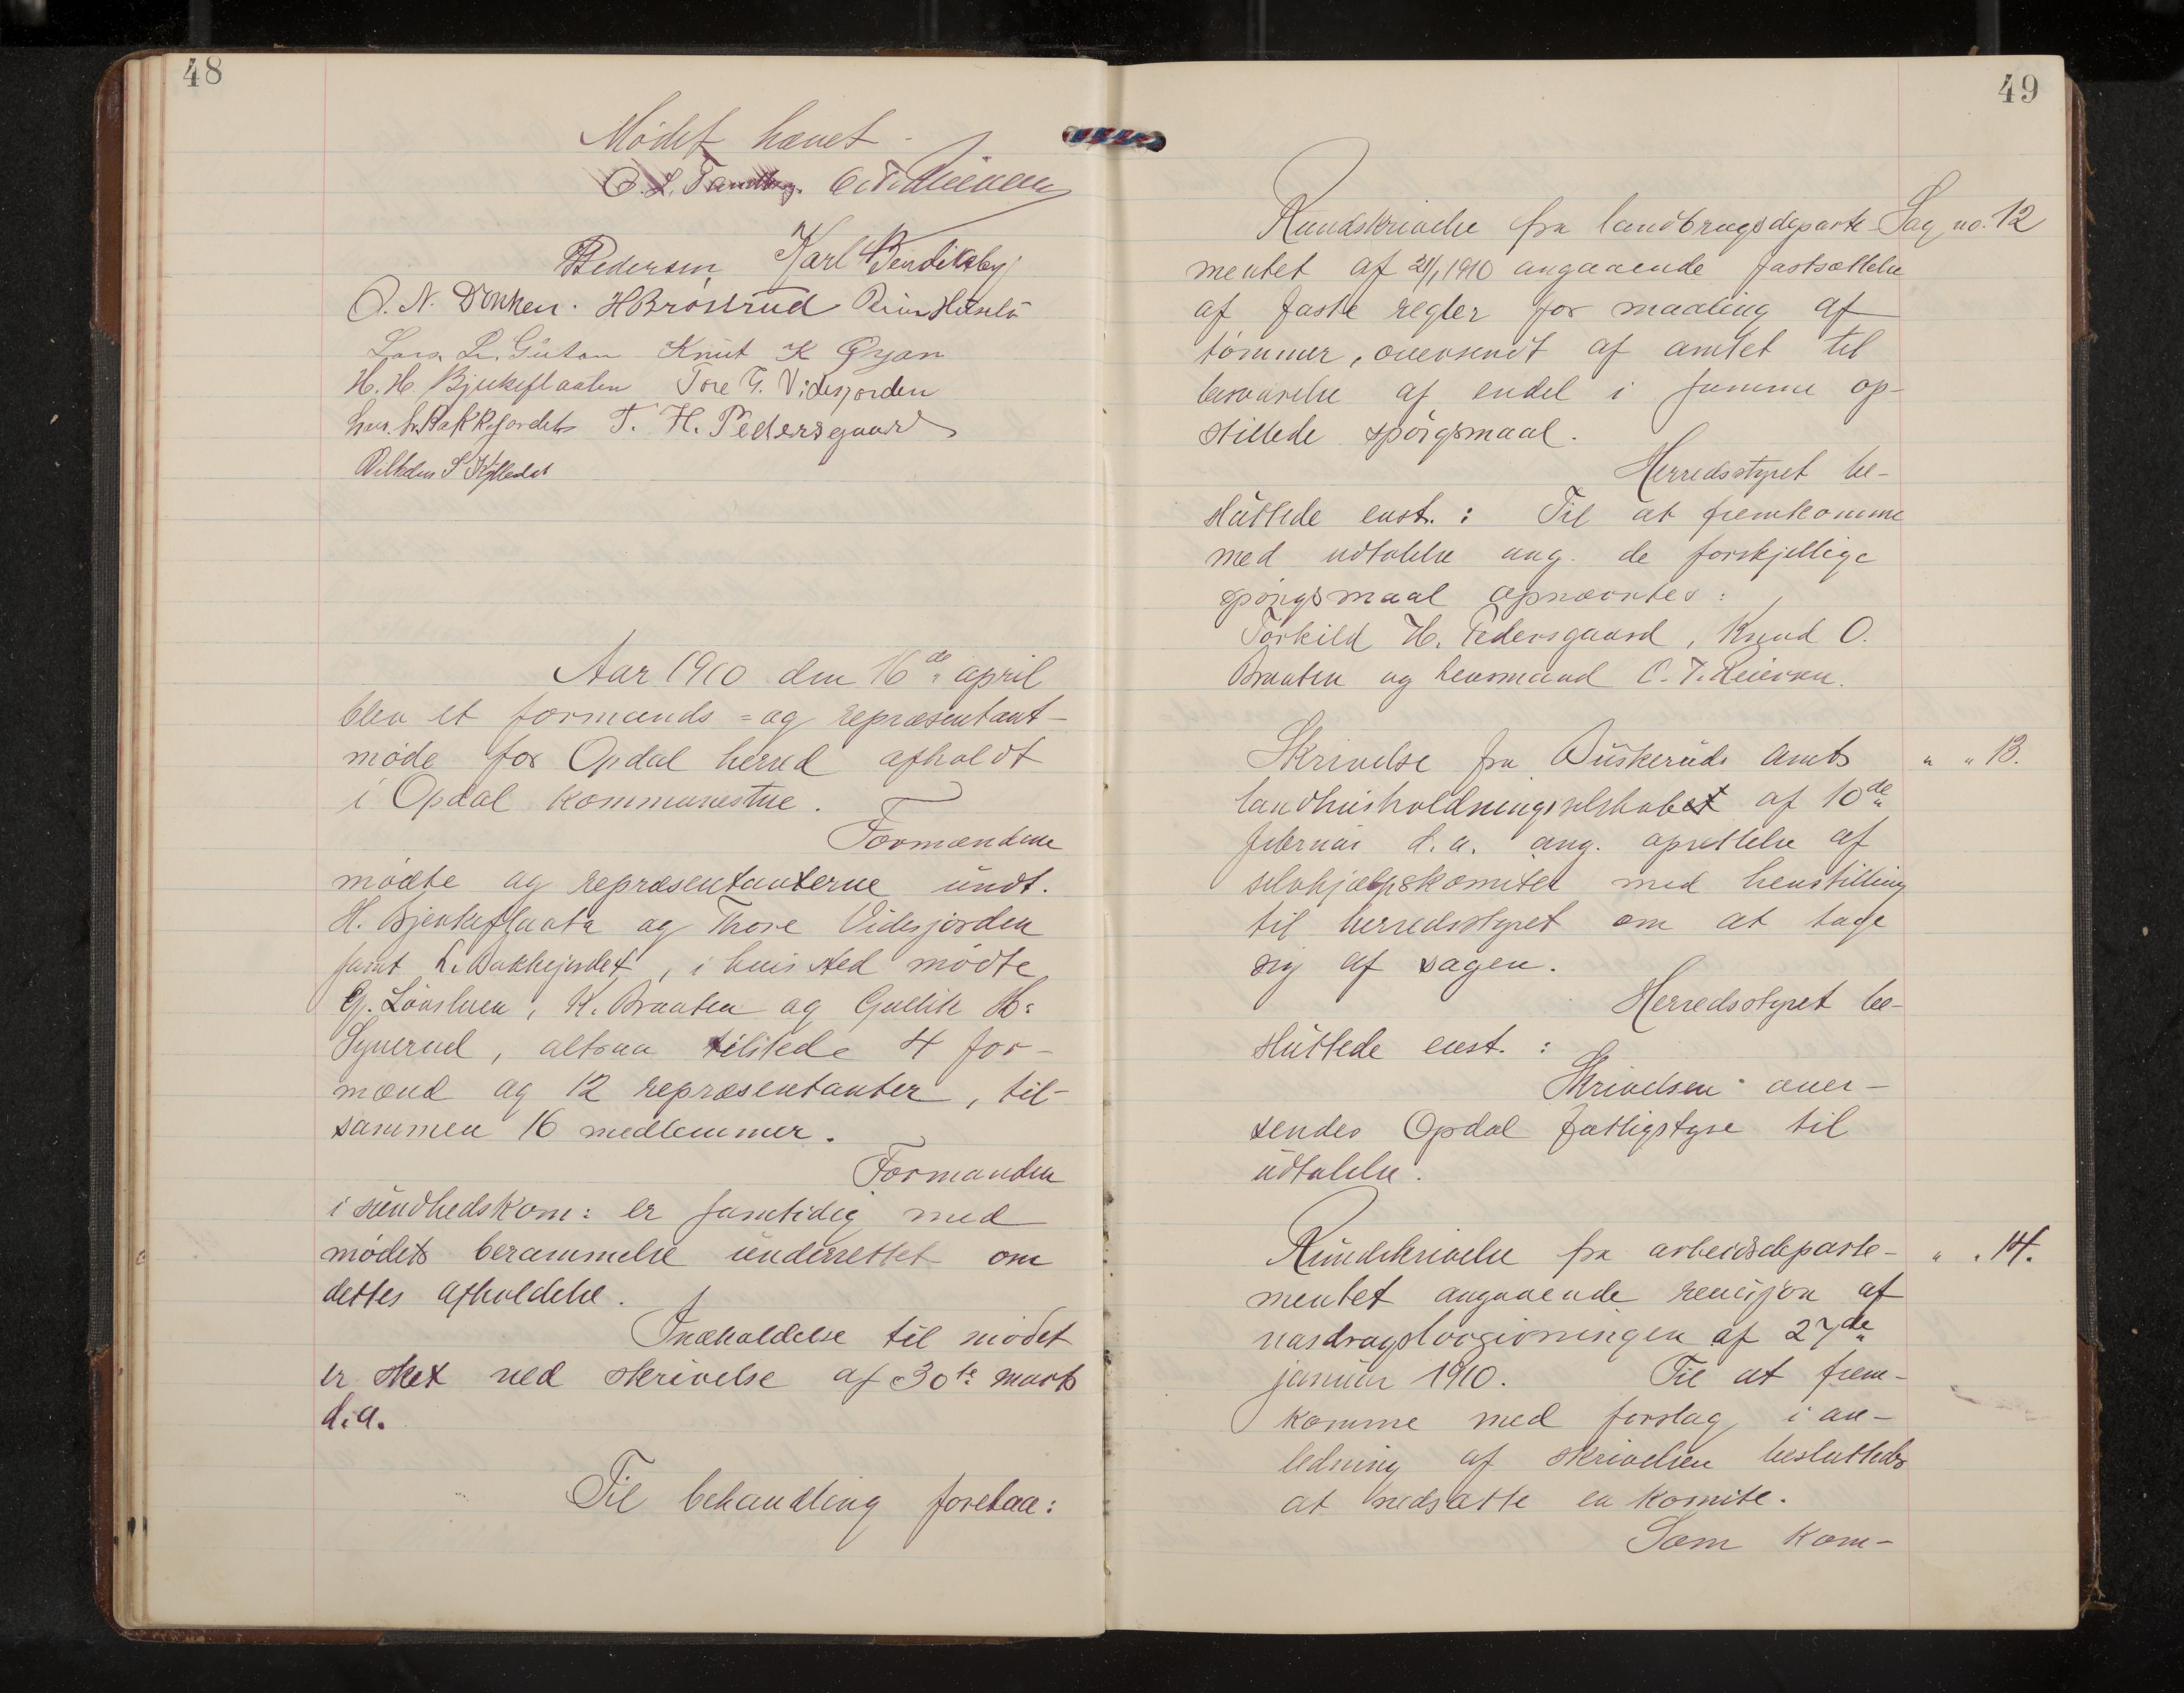 48
Mødet hævet.
O. L. Tandberg. C. T. Reiersen
P Pedersen Karl Bendiksby
O. N. Dokken. H Brøstrud
Lars L. Knut K
H. H. Bjerkeflaaten Tore G. Videsjorden
Lars L. Bakkejordet T. H. Pedersgaard
Aar 1910 den 16de april
blev et formands= og repræsentant-
møde for Opdal herred afholdt
i Opdal kommunestue.
Formændene
mødte og repræsentanterne undt.
H. Bjerkeflaata og Thore Videsjorden
samt L. Bakkejordet, i hvis sted mødte
G. Lønsluen, K. Braaten og Gullik H:
Synerud, altsaa tilstede 4 for-
mænd og 12 repræsentanter, til-
sammen 16 medlemmer.
Formanden
i sundhedskom: er samtidig med
mødets berammelse underrettet om
dettes afholdelse.
Indkaldelse til mødet
er sket ved skrivelse af 30te marts
d.a.
Til behandling foretaa:
49
Rundskrivelse fra landbrugsdeparte- Sag no. 12
mentet af 21/1 1910 angaaende fastsættelse
af faste regler for maaling af
tømmer, oversendt af amtet til
besvarelse af endel i samme op-
stillede spørgsmaal.
Herredsstyret be-
sluttede enst.: Til at fremkomme
med udtalelse ang. de forskjellige
spørgsmaal opnævntes:
Torkild H. Pedersgaard, Knud O.
Braaten og lensmand C. T. Reiersen.
Skrivelse fra Buskeruds amts " " 13.
landhusholdningsselskabet af 10de
februar d.a. ang. oprettelse af
selvhjælpskomiteer med henstilling
til herredsstyret om at tage
sig af sagen.
Herredsstyret be-
sluttede enst.:
Skrivelsen over-
sendes Opdal fattigstyre til
udtalelse.
Rundskrivelse fra arbeidsdeparte- " " 14.
mentet angaaende revisjon af
vasdragslovgivningen af 27de
januar 1910. Til at frem-
komme med forslag i an-
ledning af skrivelsen besluttedes
at nedsætte en komite.
Som kom-